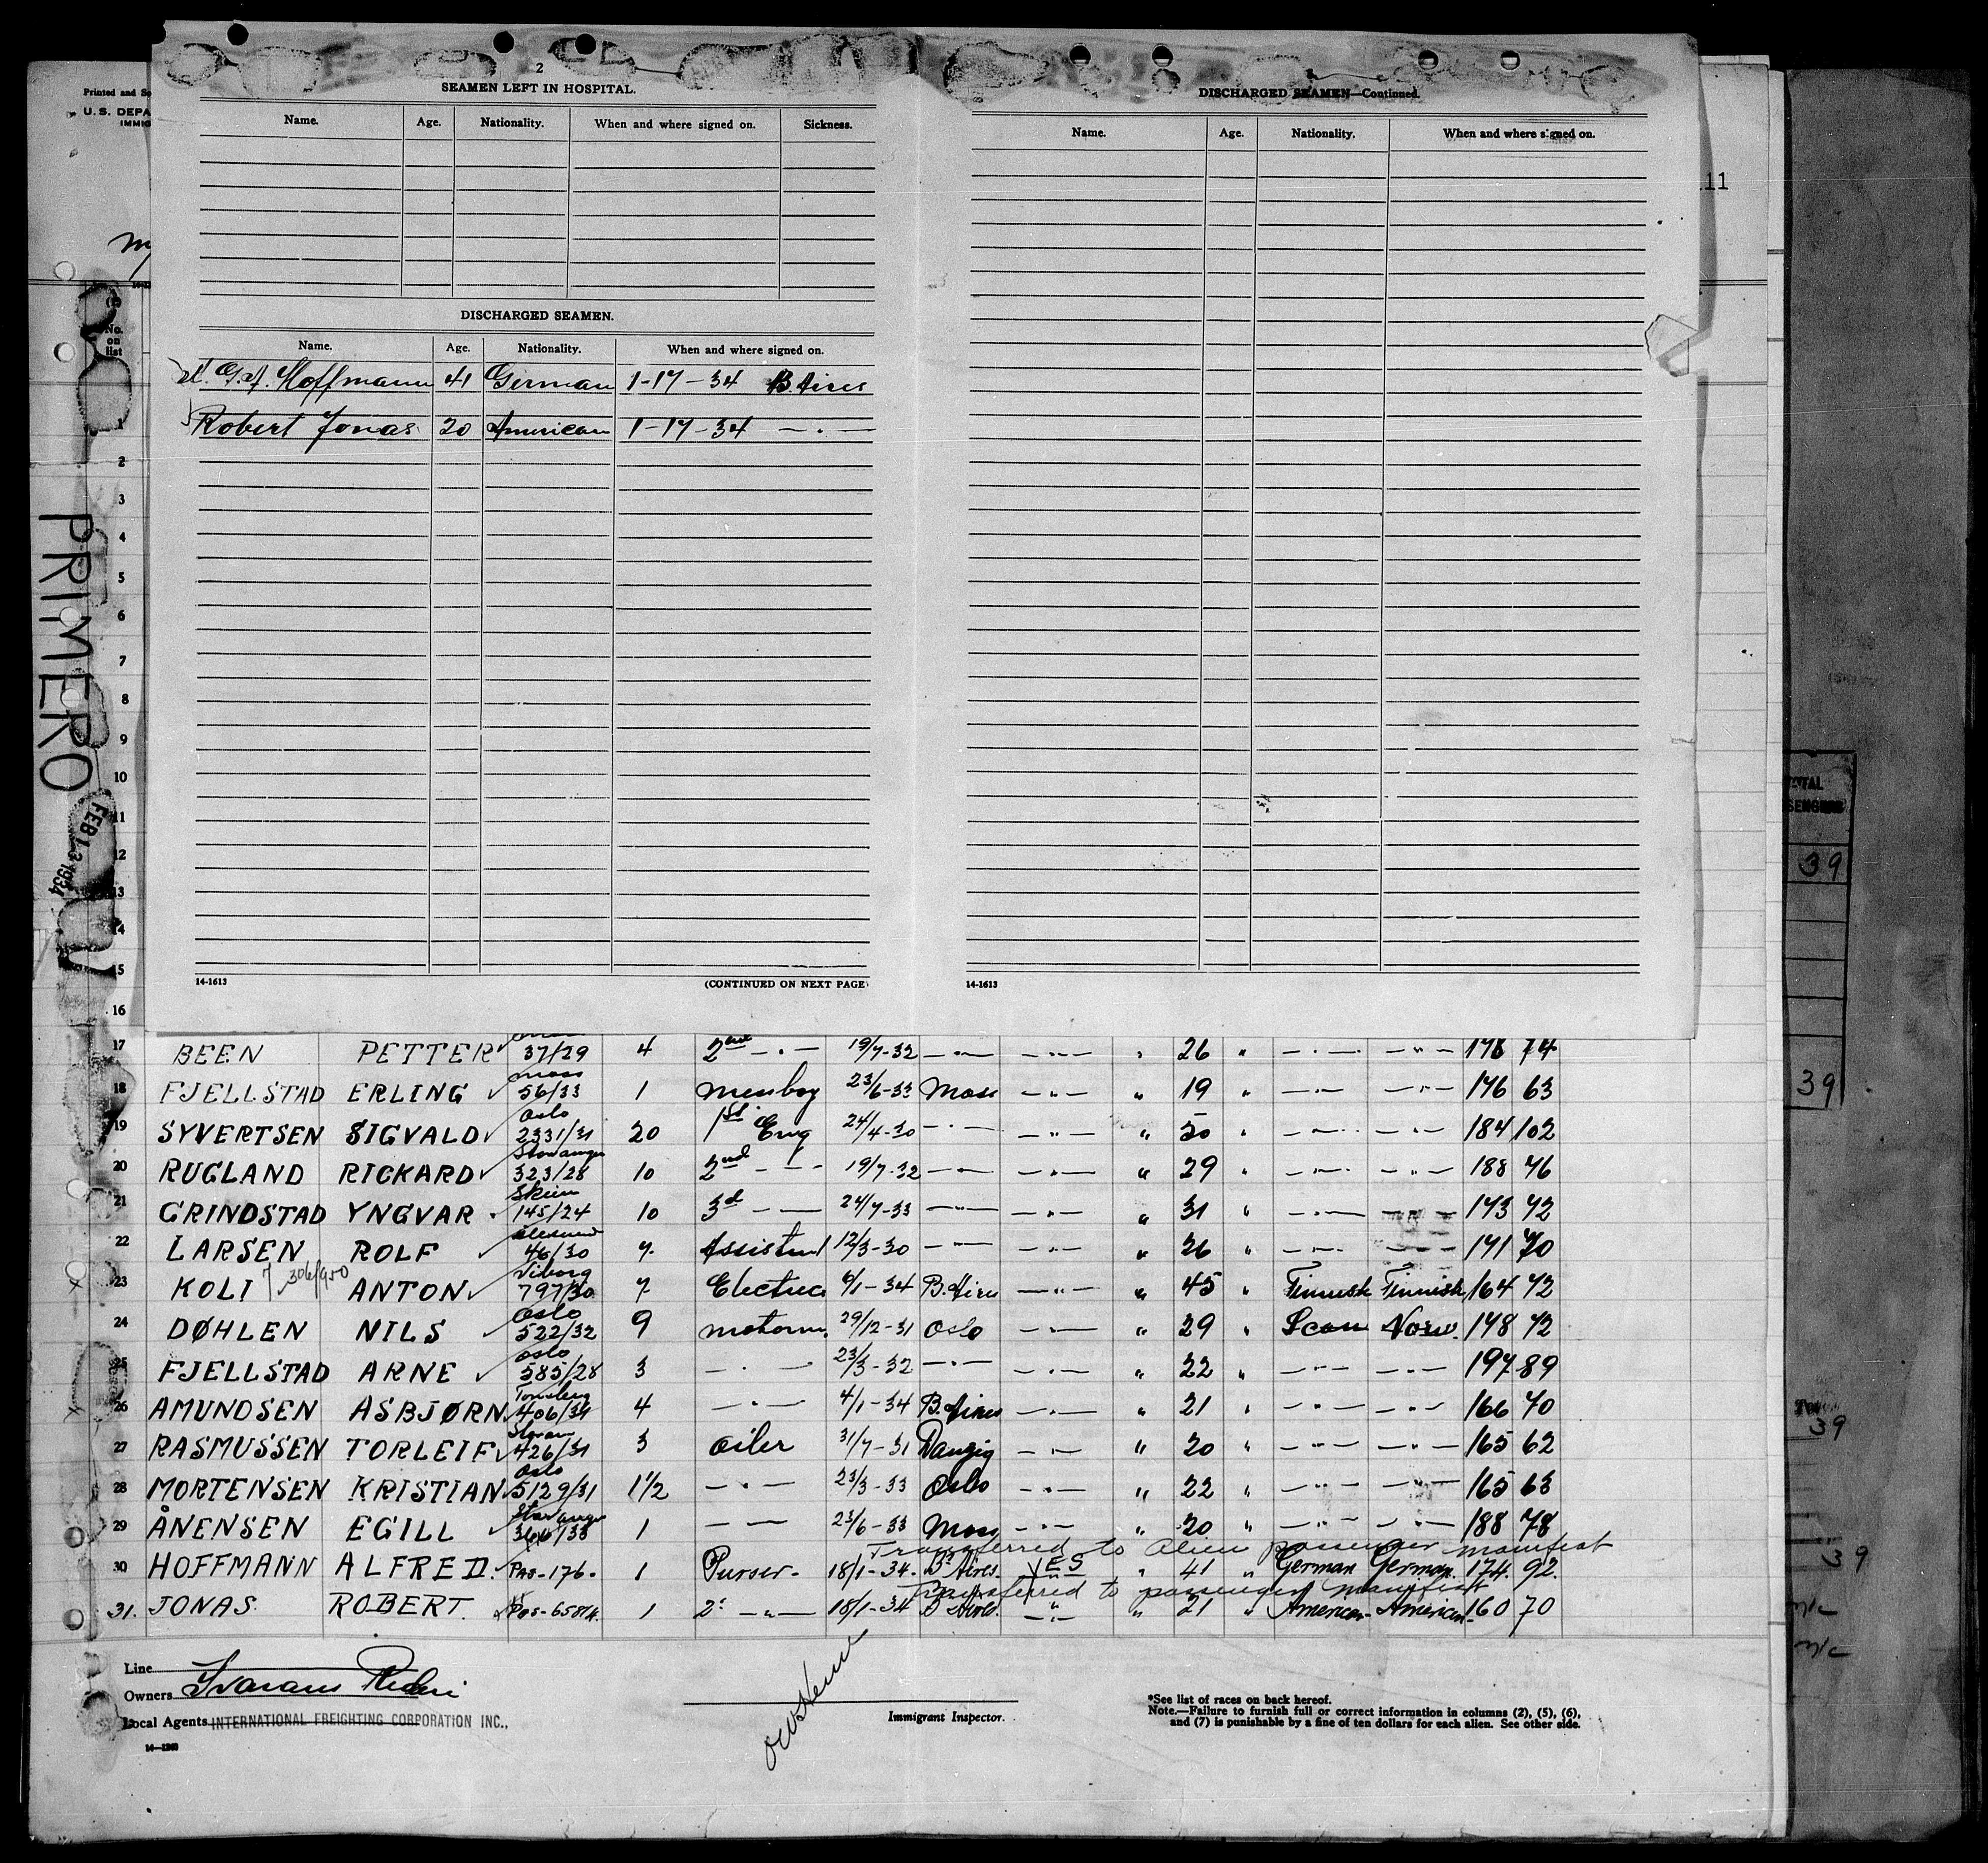 2
SEAMEN LEFT IN HOSPITAL.
Name. Age. Nationality. When and where signed on. Sickness.
DISCHARGED SEAMEN.
Name. Age. Nationality. When and where signed on.
Hoffmann 41 German 1-17-34 B. Aires
Robert Jonas 20 American 1-17-34 — . —
14-1613 (CONTINUED ON NEXT PAGE
DISCHARGED SEAMEN—Continued.
Name. Age. Nationality. When and where signed on.
14-1613
Printed and So
U.S. DEPA
IMMIG
11
(1)
No.
on
list
PRIMERO
FEB 1-3 1934
1
2
3
4
5
6
7
8
9
10
11
12
13
14
15
16
17 BEEN PETTER 37/29 4 2nd — . — 19/7-32 — . — — . — " 26 " — . — — " — 178 74
18 FJELLSTAD ERLING moss 56/33 1 messboy 23/6-33 Moss — " — " 19 " — . — — " — 176 63
19 SYVERTSEN SIGVALD oslo 2331/31 20 1st Eng 24/4-30 — . — — " — " 50 " — . — — . — 184 102
20 RUGLAND RICKARD Stavanger 323/28 10 2nd — — 19/7-32 — . — — . — " 29 " — . — — . — 188 76
21 GRINDSTAD YNGVAR Skien 145/24 10 3d — — 24/7-33 — " — — . — " 31 " — . — — " — 173 72
22 LARSEN ROLF 46/30 7 Assistent 12/3-30 — . — — . — " 26 " — . — — . — 171 70
23 KOLI 306/950 ANTON Viborg 797/30 7 Electric. 6/1-34 B. Aires — " — " 45 " Finnish Finnish 164 72
24 DØHLEN NILS Oslo 522/32 9 motorm. 29/12-31 Oslo — . — " 29 " Scan Norw. 178 72
25 FJELLSTAD ARNE oslo 585/28 3 — . — 23/3-32 — . — — . — " 22 " — . — — . — 197 89
26 AMUNDSEN ASBJØRN Tønsberg 406/31 4 — . — 4/1-34 B. Aires — . — " 21 " — . — — . — 166 70
27 RASMUSSEN TORLEIF 426/31 3 oiler 31/7-31 Danzig — . — " 20 " — " — — . — 165 62
28 MORTENSEN KRISTIAN Oslo 5129/31 1½ — . — 23/3-33 Oslo — . — " 22 " — " — — " — 165 63
29 ÅNENSEN EGILL Stavanger 366/33 1 — — 23/6-33 Moss — . — " 20 " — " — — . — 188 78
Transferred to Alien passenger manifest
30 HOFFMANN ALFRED. Pas-176. 1 Purser. 18/1-34. Bs Aires. YES " 41 " German German. 174. 92.
Transferred to passenger manifest
31. JONAS. ROBERT. Pas-65814. 1 2: — " — 18/1-34 — " — " 21 " American American 160 70
Line
Owners Ivarans Rederi
Local Agents INTERNATIONAL FREIGHTING CORPORATION INC.,
Immigrant Inspector.
*See list of races on back hereof.
Note.—Failure to furnish full or correct information in columns (2), (5), (6),
and (7) is punishable by a fine of ten dollars for each alien. See other side.
39
39
39
39